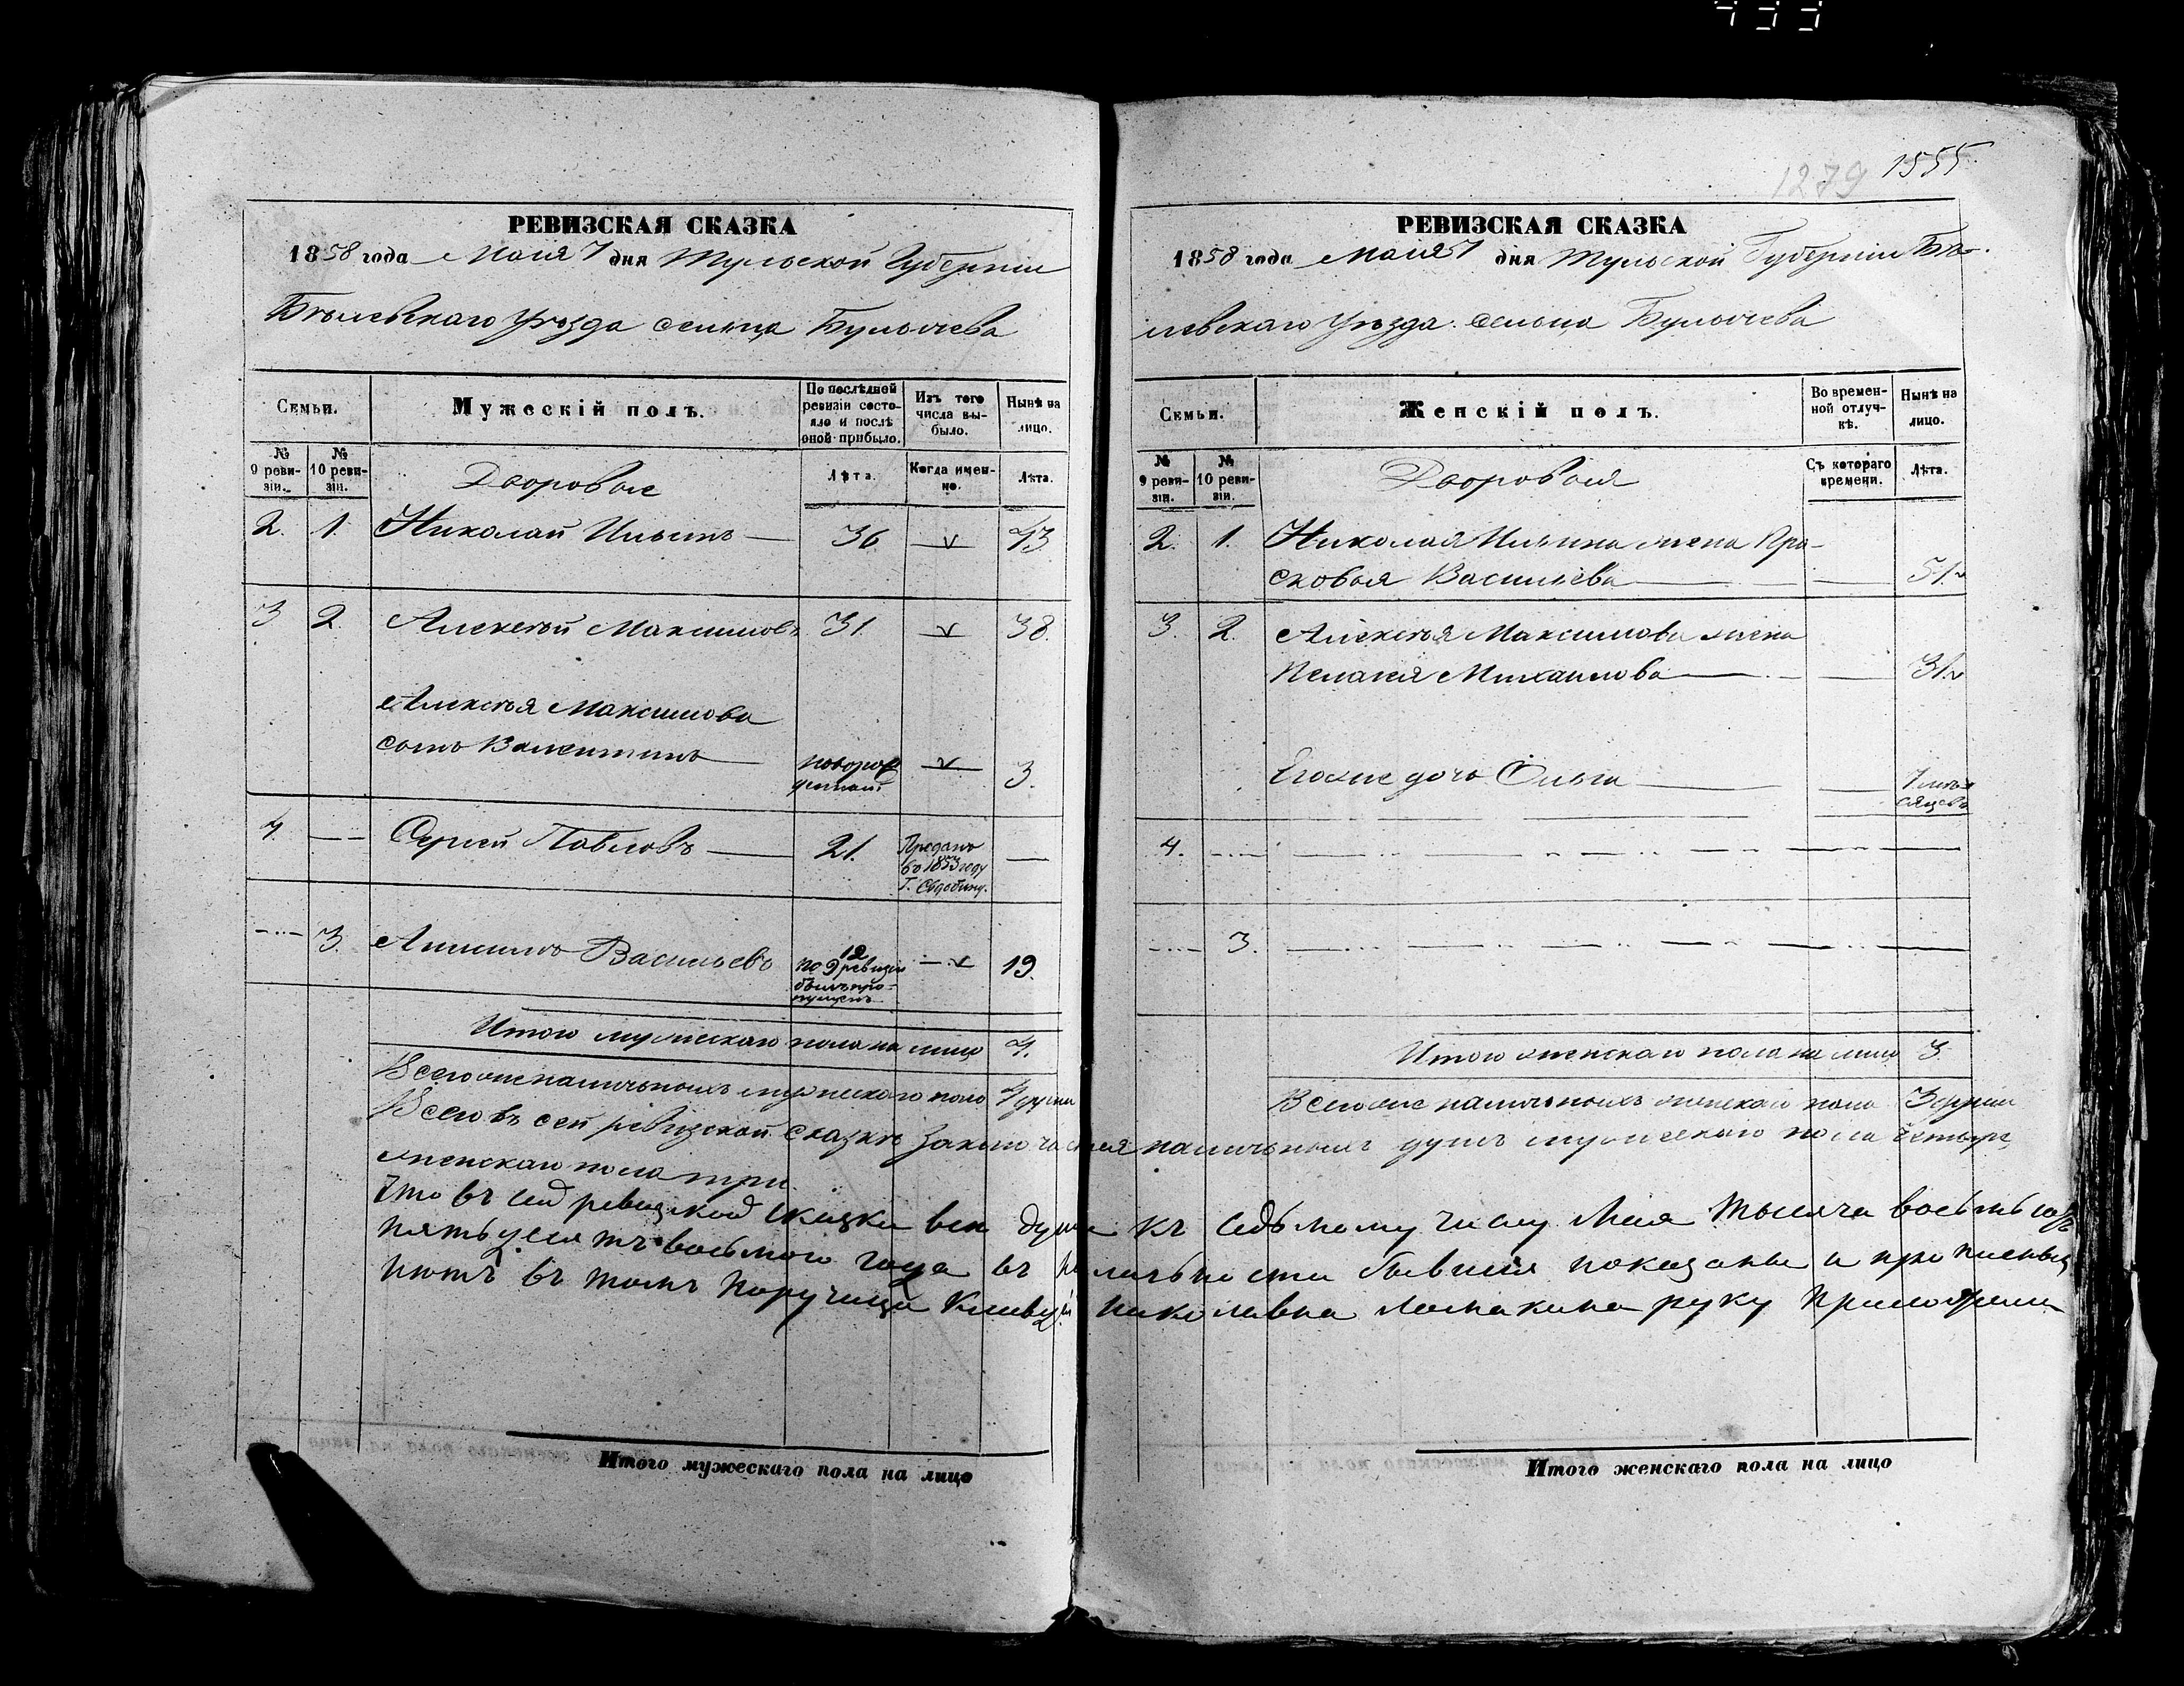 433
РЕВИЗСКАЯ СКАЗКА
1858 года Маія 7 дня Тульской Губерніи
Бѣлевскаго Уѣзда сельца Булычева
Семьи.
Мужескій полъ.
По послѣдней ревизіи состояло и послѣ оной прибыло.
Изъ того числа выбыло.
Нынѣ на лицо.
№ 9 ревизіи.
№ 10 ревизіи.
Дворовые
Лѣта.
Когда именно.
Лѣта.
2. 1. Николай Ильинъ 36 v 43
3 2. Алексѣй Максимовъ 31. v 38.
Алексѣя Максимова
сынъ Валентинъ новорожденный v 3.
4. Сергей Павловъ 21. Проданъ
во 1853 году
Г.
3. Анисимъ Васильевъ 12 v 19.
по 9 ревизіи
былъ про-
пущенъ
Итого мужескаго пола на лицо 4.
Всего же наличныхъ мужескаго пола 4 души
1279 1555.
РЕВИЗСКАЯ СКАЗКА
1858 года Маія 7 дня Тульской Губерніи Бѣ-
левскаго Уѣзда сельца Булычева
Семьи.
Женскій полъ.
Во временной отлучкѣ.
Нынѣ на лицо.
№ 9 ревизіи.
№ 10 ревизіи.
Дворовыя
Съ котораго времени.
Лѣта.
2. 1. Николая Ильина жена Пра-
сковья Васильева 51. v
3. 2. Алексѣя Максимова жена
Пелагея Михаилова 31. v
Егоже дочь Ольга 7 мѣ-
сяцевъ
4.
3.
Итого женскаго пола на лицо 3
Всего же наличныхъ женскаго пола 3 души
Всего въ сей ревизской сказкѣ заключается наличныхъ душъ мужескаго пола четыре,
женскаго пола три.
Что въ сей ревизской сказки все души къ седьмому числу Мая тысяча восемьсотъ
пятьдесятъ восьмого года въ наличности бывшия показаны и прописныхъ
нютъ въ томъ Порутчица Николавна Ломакина руку приложила
Итого мужескаго пола на лицо
Итого женскаго пола на лицо